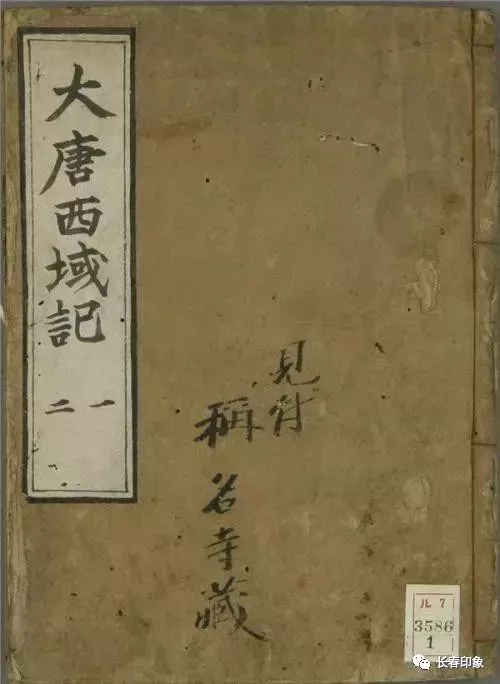 大唐西域記
一
二
見付
稱名寺藏
ル 7
3586
1
长春印象